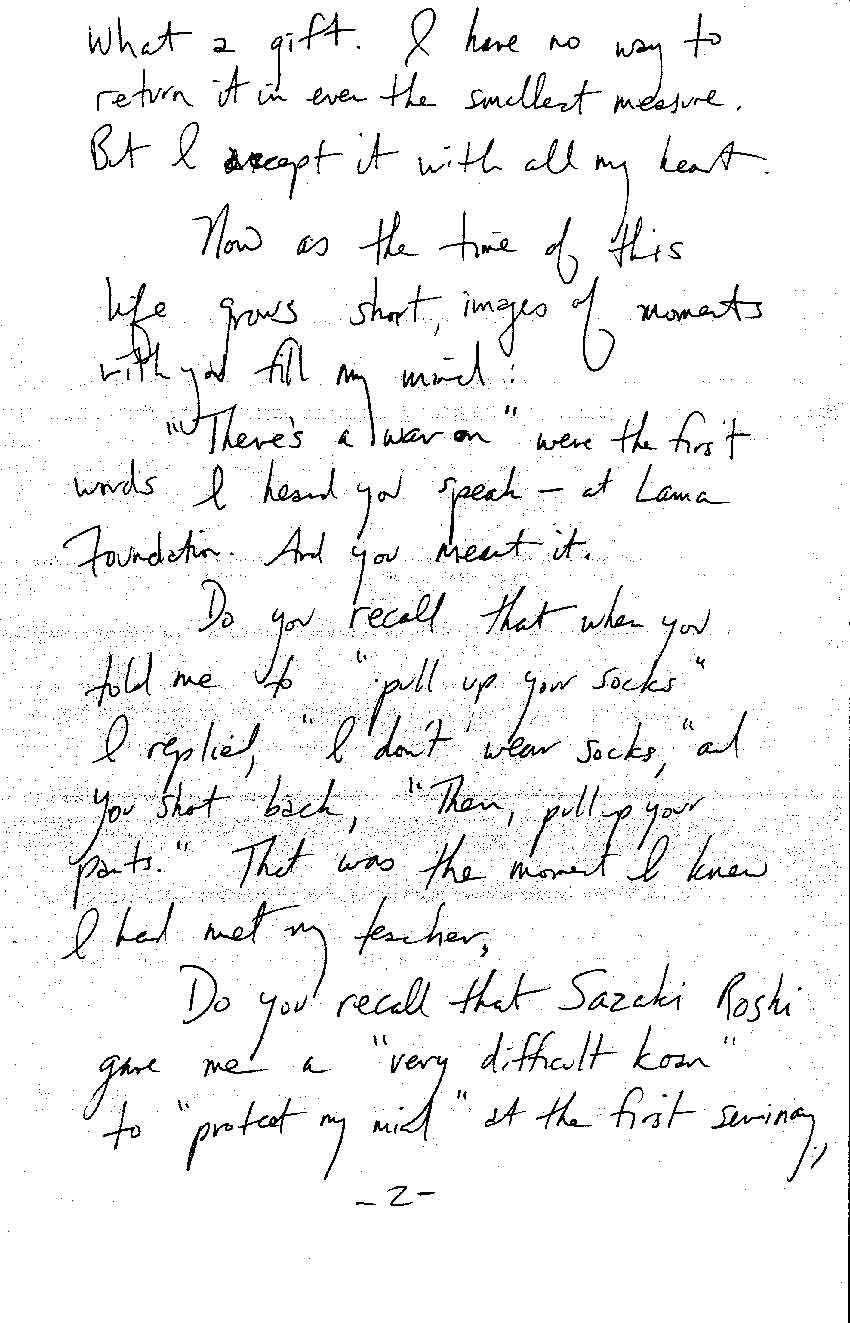 What a gift. I have no way to
return it in even the smallest measure.
But I accept it with all my heart.
Now as the time of this
life grows short, images of moments
with you fill my mind:
"There's a war on" were the first
words I heard you speak – at Lama
Foundation. And you meant it.
Do you recall that when you
told me to "pull up your socks"
I replied, "I don't wear socks," and
you shot back, "Then, pull up your
pants." That was the moment I knew
I had met my teacher,
Do you recall that Sazaki Roshi
gave me a "very difficult koan"
to "protect my mind" at the first seminary,
– 2 –